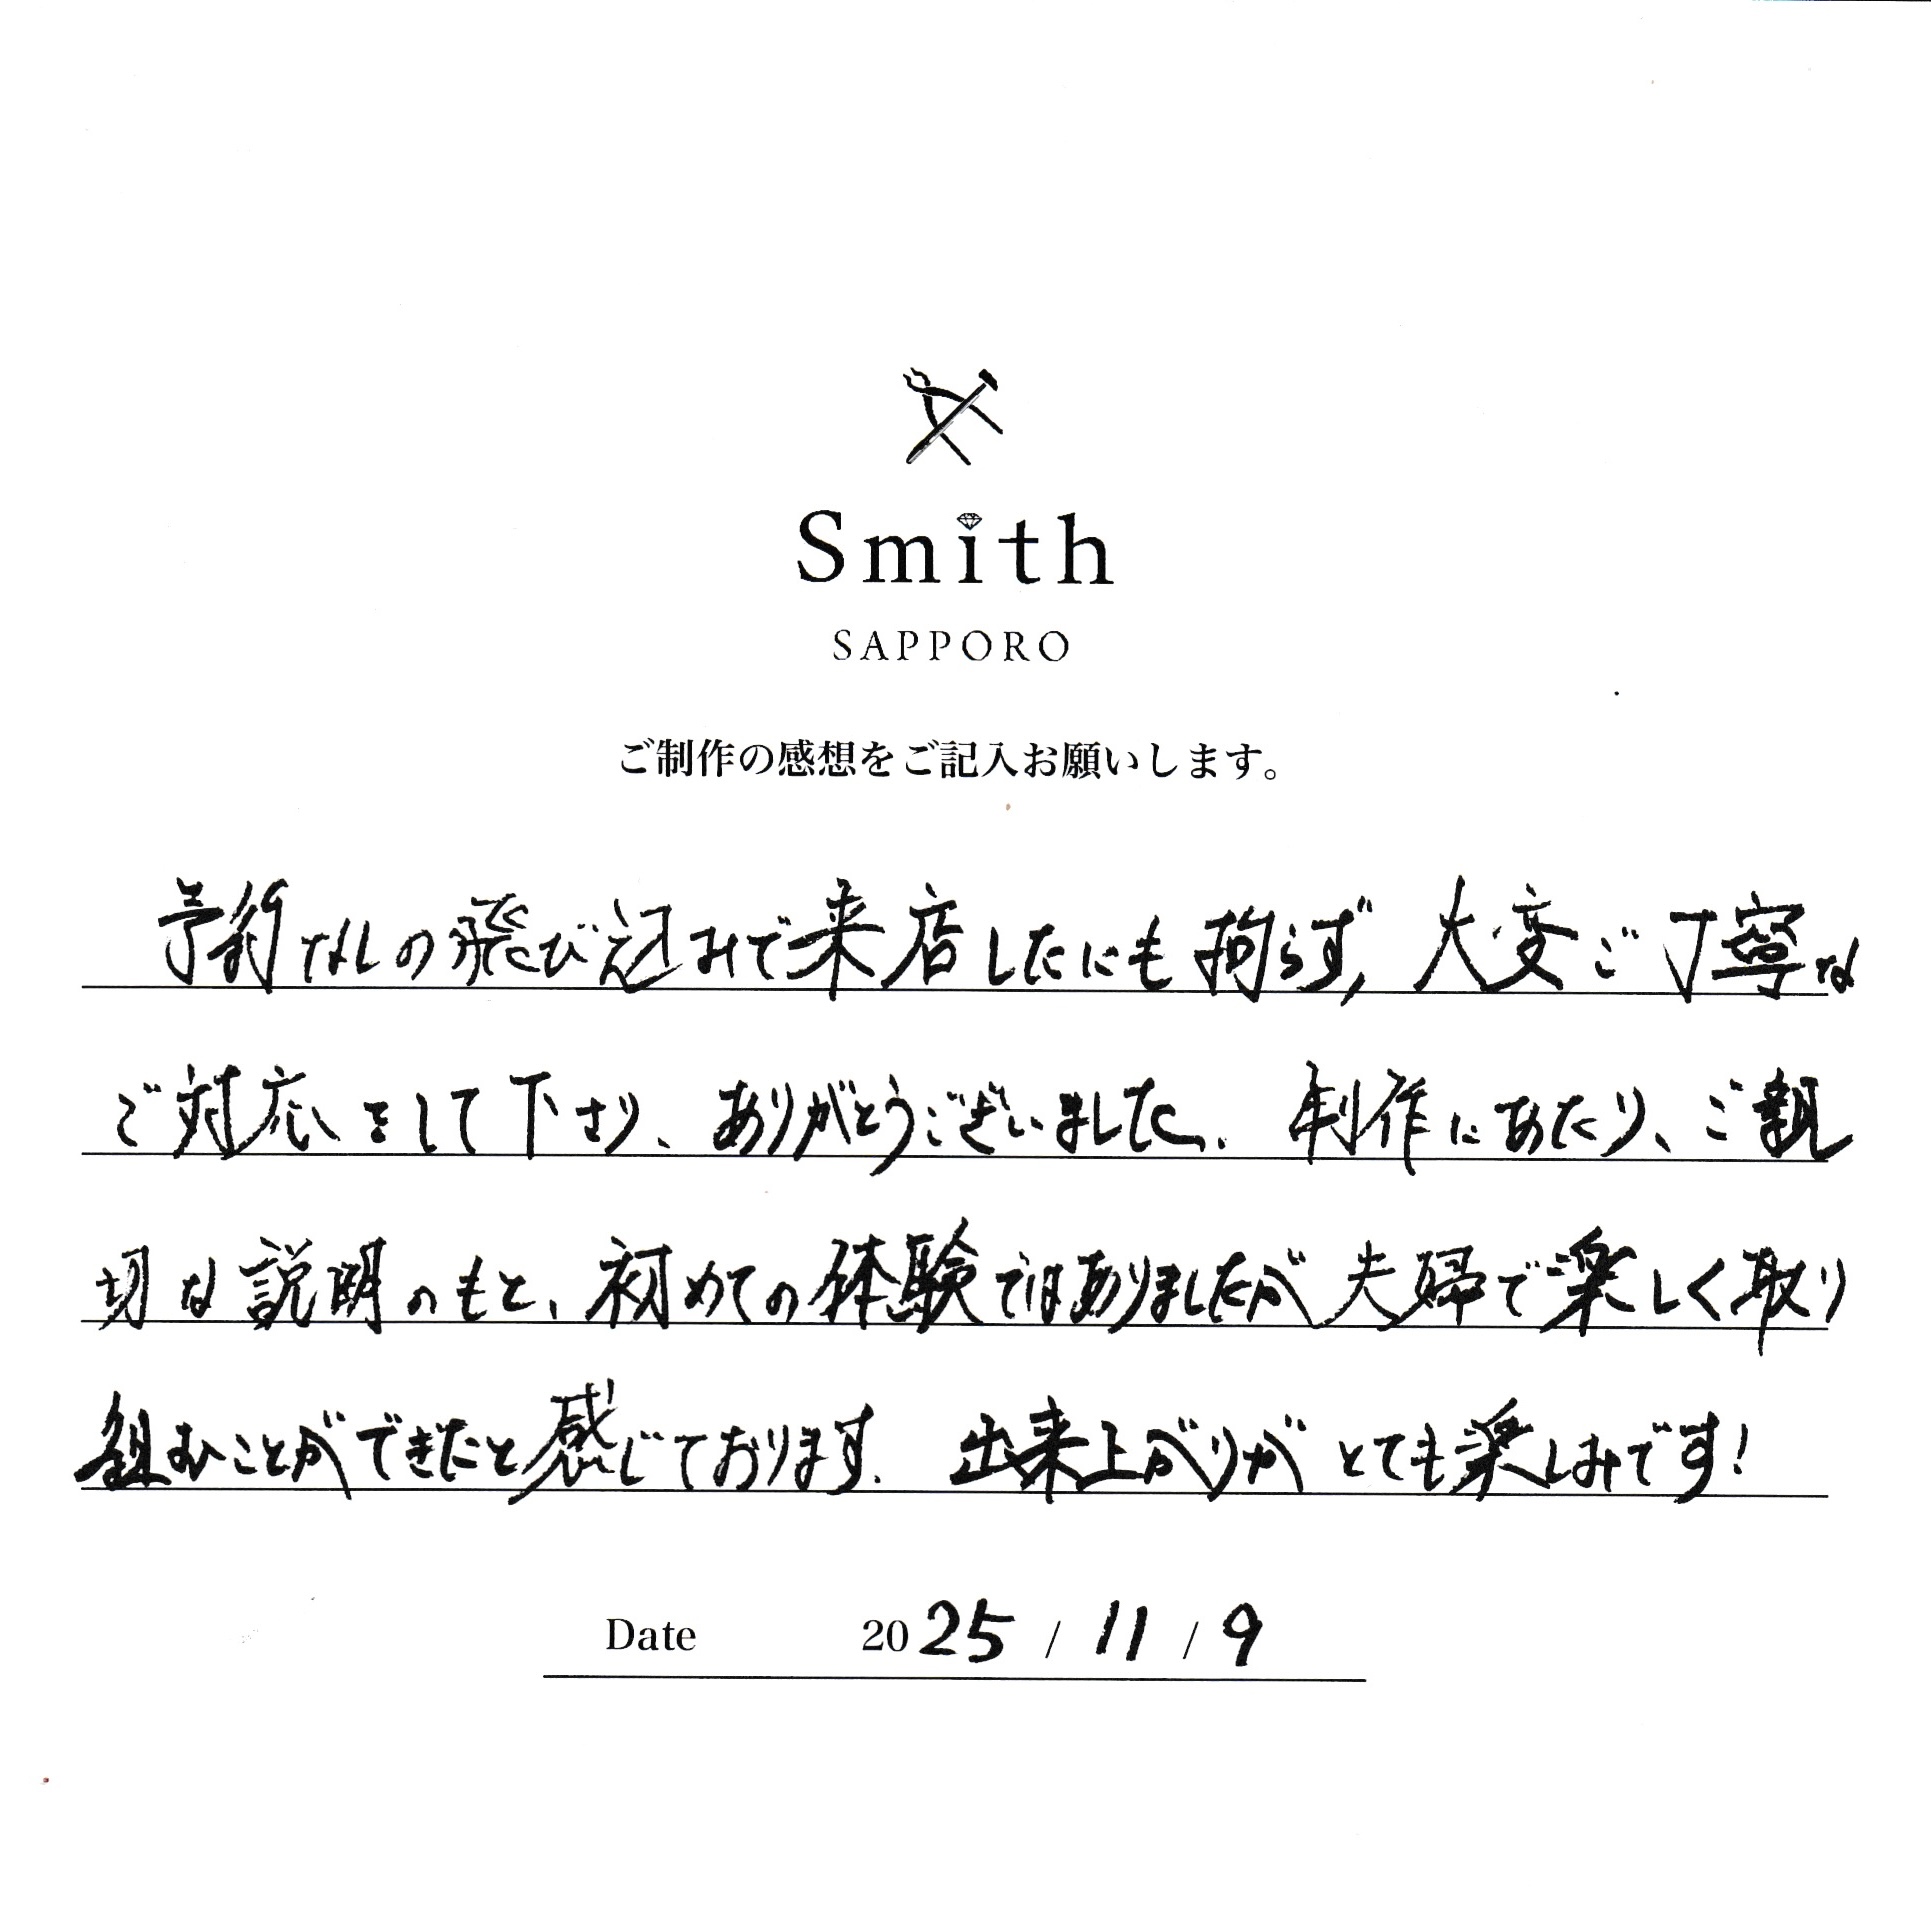 Smith
SAPPORO
ご制作の感想をご記入お願いします。
予約なしの飛び込みで来店したにも拘らず、大変ご丁寧な
ご対応をして下さり、ありがとうございました。制作にあたり、ご親
切な説明のもと、初めての体験ではありましたが夫婦で楽しく取り
組むことができたと感じております。出来上がりがとても楽しみです!
Date 2025 / 11 / 9